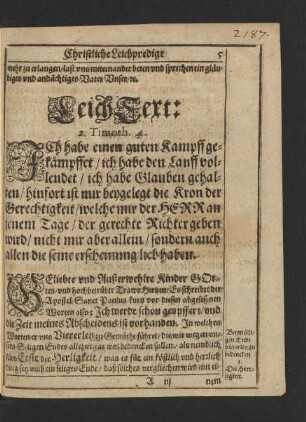 2187.
Christliche Leichpredigt 5
mehr zu erlangen/ last vns miteinander beten vnd sprechen ein gläu-
biges vnd andächtiges Vater Vnser/ ꝛc.
Leich Text:
2. Timoth. 4.
ICh habe einen guten Kampff ge-
kämpffet/ ich habe den Lauff vol-
lendet/ ich habe Glauben gehal-
ten/ hinfort ist mir beygelegt die Kron der
Gerechtigkeit/ welche mir der HERR an
jenem Tage/ der gerechte Richter geben
wird/ nicht mir aber allein/ sondern auch
allen die seine erscheinung lieb haben.
GEliebte vnd Außerwehlte Kinder GOt-
tes/ vnd hochbetrübte Es schreibet der
Apostel Sanct Paulus kurtz vor diesen abgelesenen
Worten also: Ich werde schon geopffert/ vnd
die Zeit meines Abscheidens ist vorhanden. In welchen
Worten er vns Viererley zu Gemüthe führet/ die wir wegen vn-
sers Seligen Endes allezeit bedencken sollen/ als nemblich
Erste die Herligkeit/ was es für ein köstlich vnd herrlich
ding sey vmb ein seliges Ende/ daß solches verglichen wird mit ei-
A iij nem
Bey
gen End
vier
bedencken
1.
Die Her-
ligkeit.